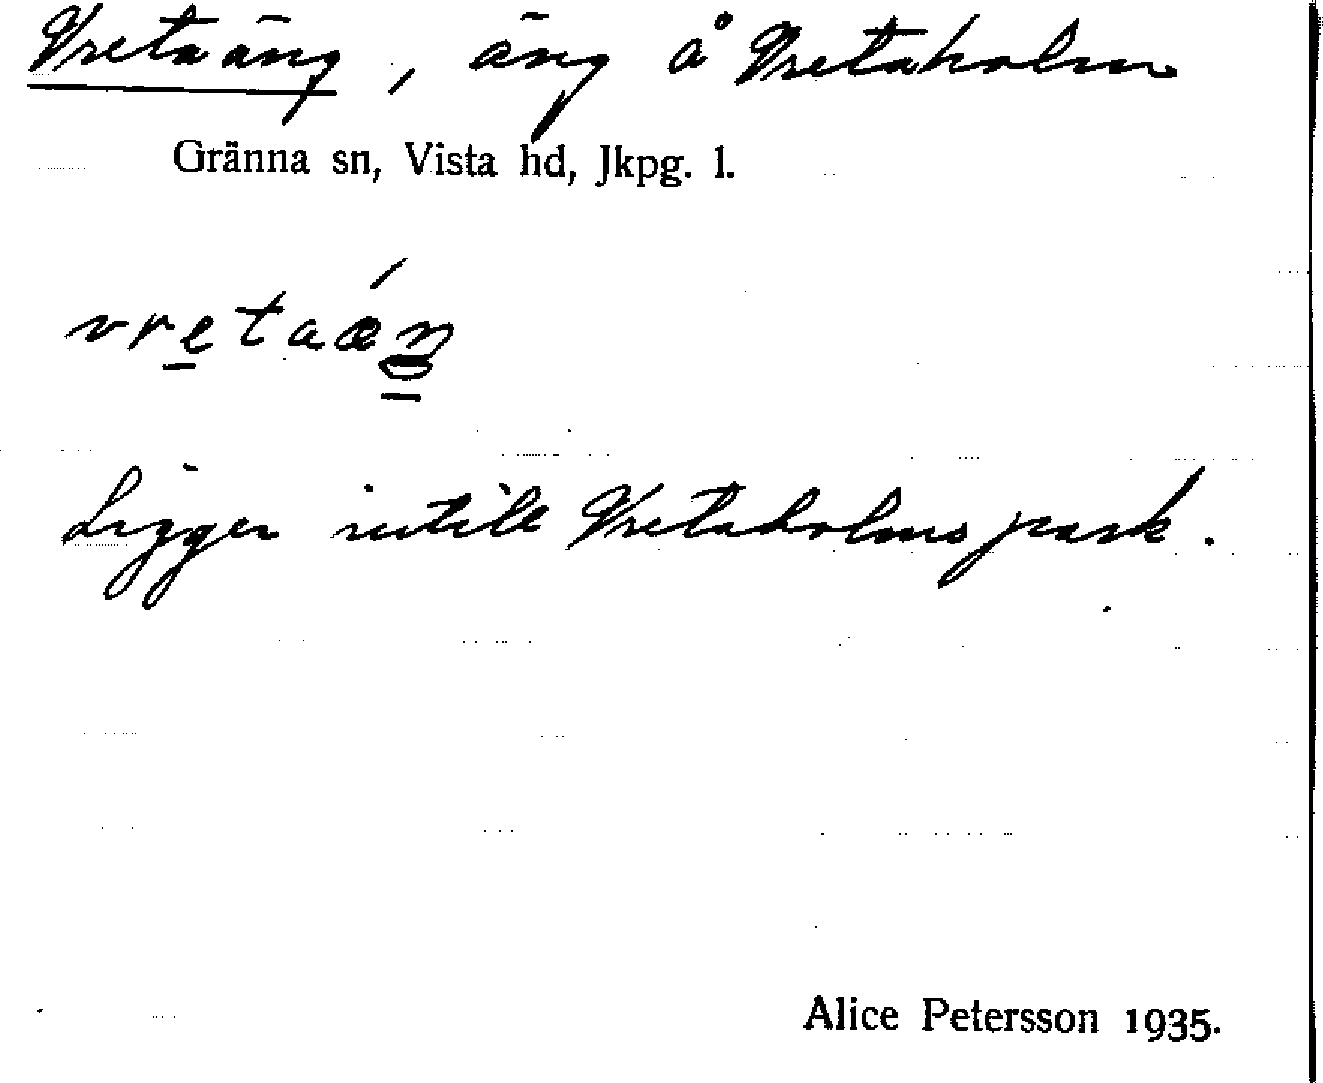 Vretaäng, äng å Vretaholm
Gränna sn, Vista hd, Jkpg. l.
vretaæŋ
Ligger intill Vretaholms park.
Alice Petersson 1935.